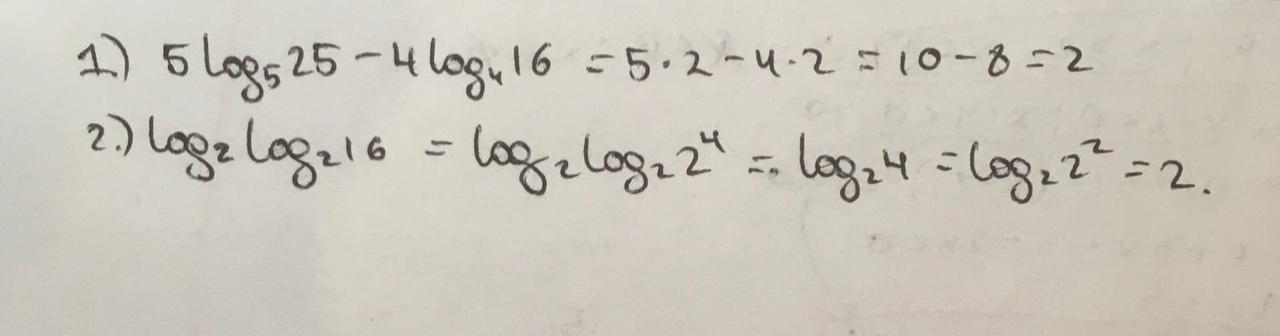 1.) 5 log₅ 25 - 4 log₄ 16 = 5 · 2 - 4 · 2 = 10 - 8 = 2
2.) log₂ log₂ 16 = log₂ log₂ 2⁴ = log₂ 4 = log₂ 2² = 2.